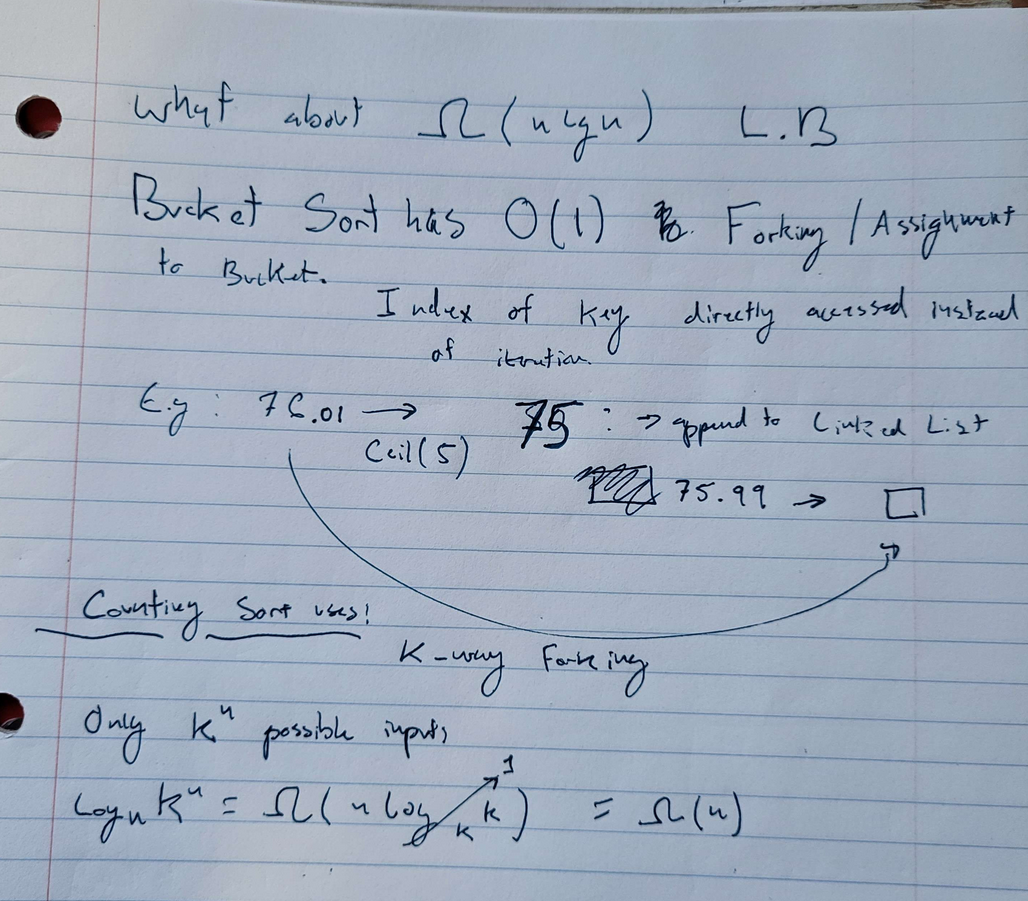 What about Ω(n lg n) L.B
Bucket Sort has O(1) Forking / Assignment
to Bucket.
Index of key directly accessed instead
of iteration.
E.g : 76.01 → 75 : → append to Linked List
Ceil(5)
75.99 → □
Counting Sort uses:
K-way Forking
Only k^n possible inputs
Log_n k^n = Ω(n log_k k) = Ω(n)
1